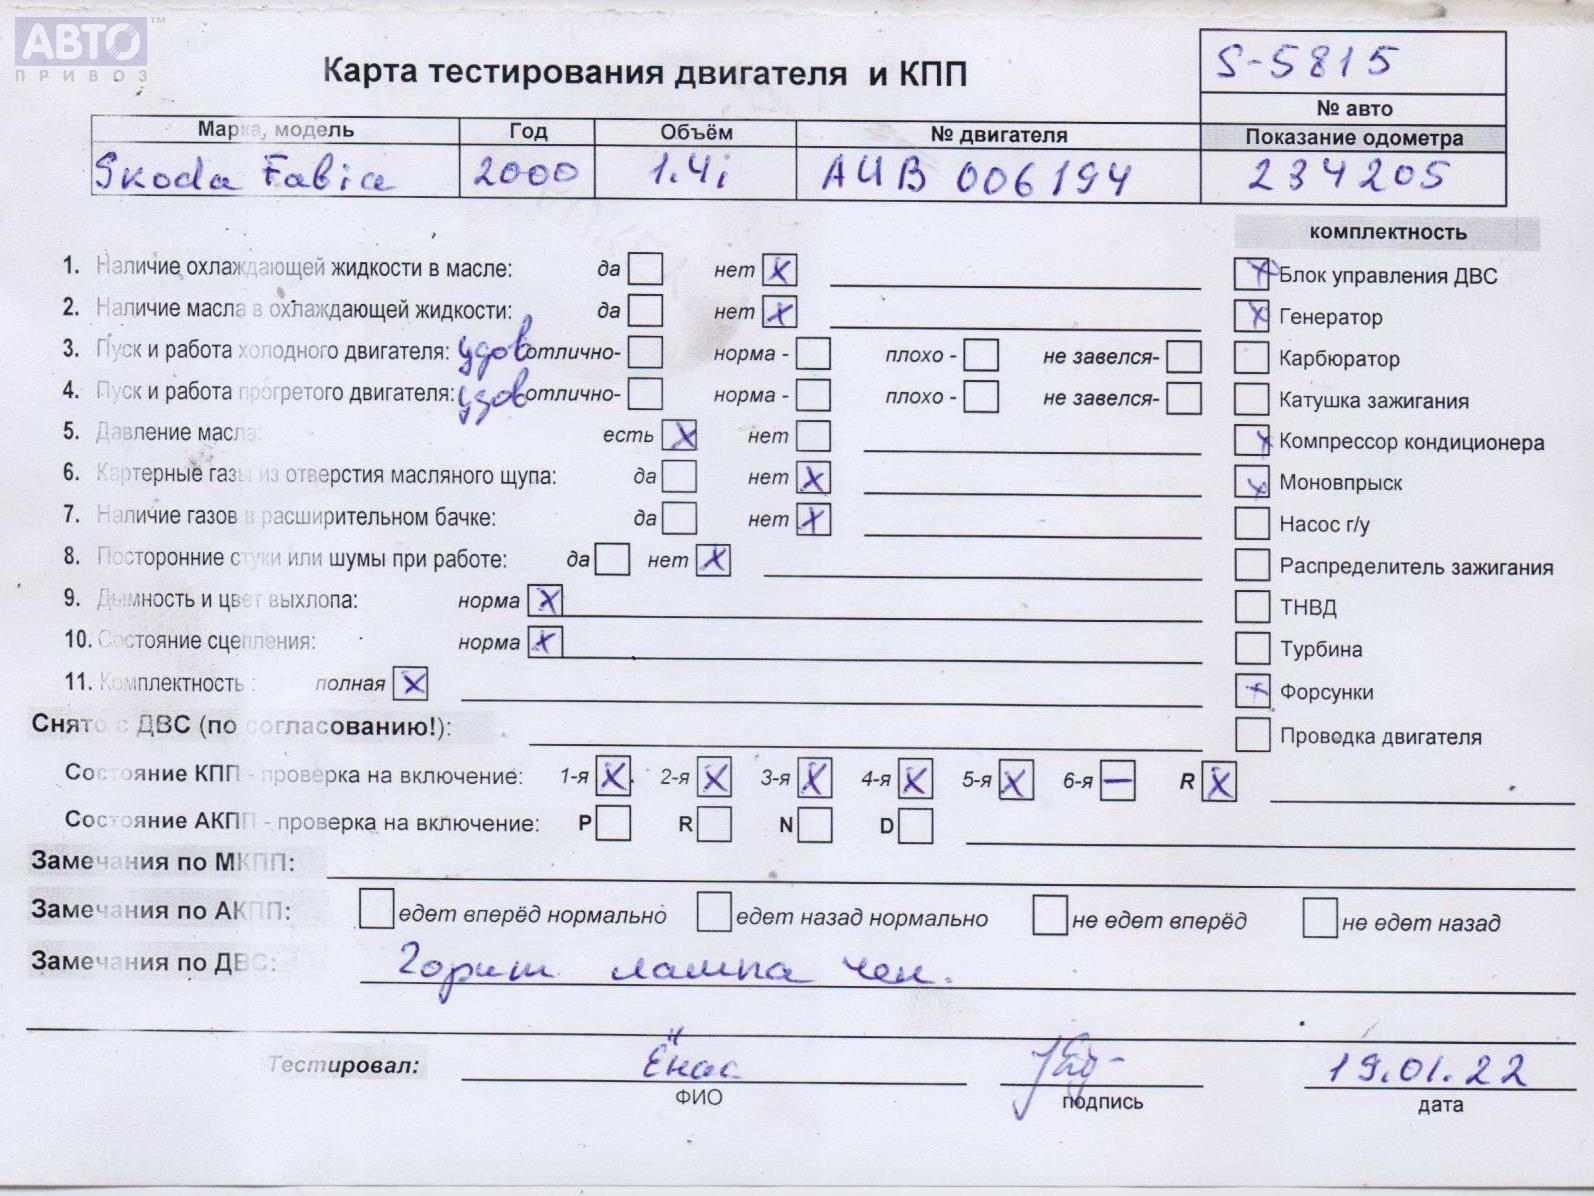 АВТО™
ПРИВОЗ
Карта тестирования двигателя и КПП
S-5815
№ авто
Марка, модель Год Объём № двигателя Показание одометра
Skoda Fabia 2000 1.4i АИВ 006194 234205
комплектность
1. Наличие охлаждающей жидкости в масле: да нет X
2. Наличие масла в охлаждающей жидкости: да нет X
3. Пуск и работа холодного двигателя: удов отлично- норма - плохо - не завелся-
4. Пуск и работа прогретого двигателя: удов отлично- норма - плохо - не завелся-
5. Давление масла: есть X нет
6. Картерные газы из отверстия масляного щупа: да нет X
7. Наличие газов в расширительном бачке: да нет X
8. Посторонние стуки или шумы при работе: да нет X
9. Дымность и цвет выхлопа: норма X
10. Состояние сцепления: норма X
11. Комплектность : полная X
X Блок управления ДВС
X Генератор
Карбюратор
Катушка зажигания
X Компрессор кондиционера
X Моновпрыск
Насос г/у
Распределитель зажигания
ТНВД
Турбина
X Форсунки
Проводка двигателя
Снято с ДВС (по согласованию!):
Состояние КПП - проверка на включение: 1-я X 2-я X 3-я X 4-я X 5-я X 6-я — R X
Состояние АКПП - проверка на включение: P R N D
Замечания по МКПП:
Замечания по АКПП: едет вперёд нормально едет назад нормально не едет вперёд не едет назад
Замечания по ДВС: Горит лампа чек.
Тестировал: Ёнас 19.01.22
ФИО подпись дата